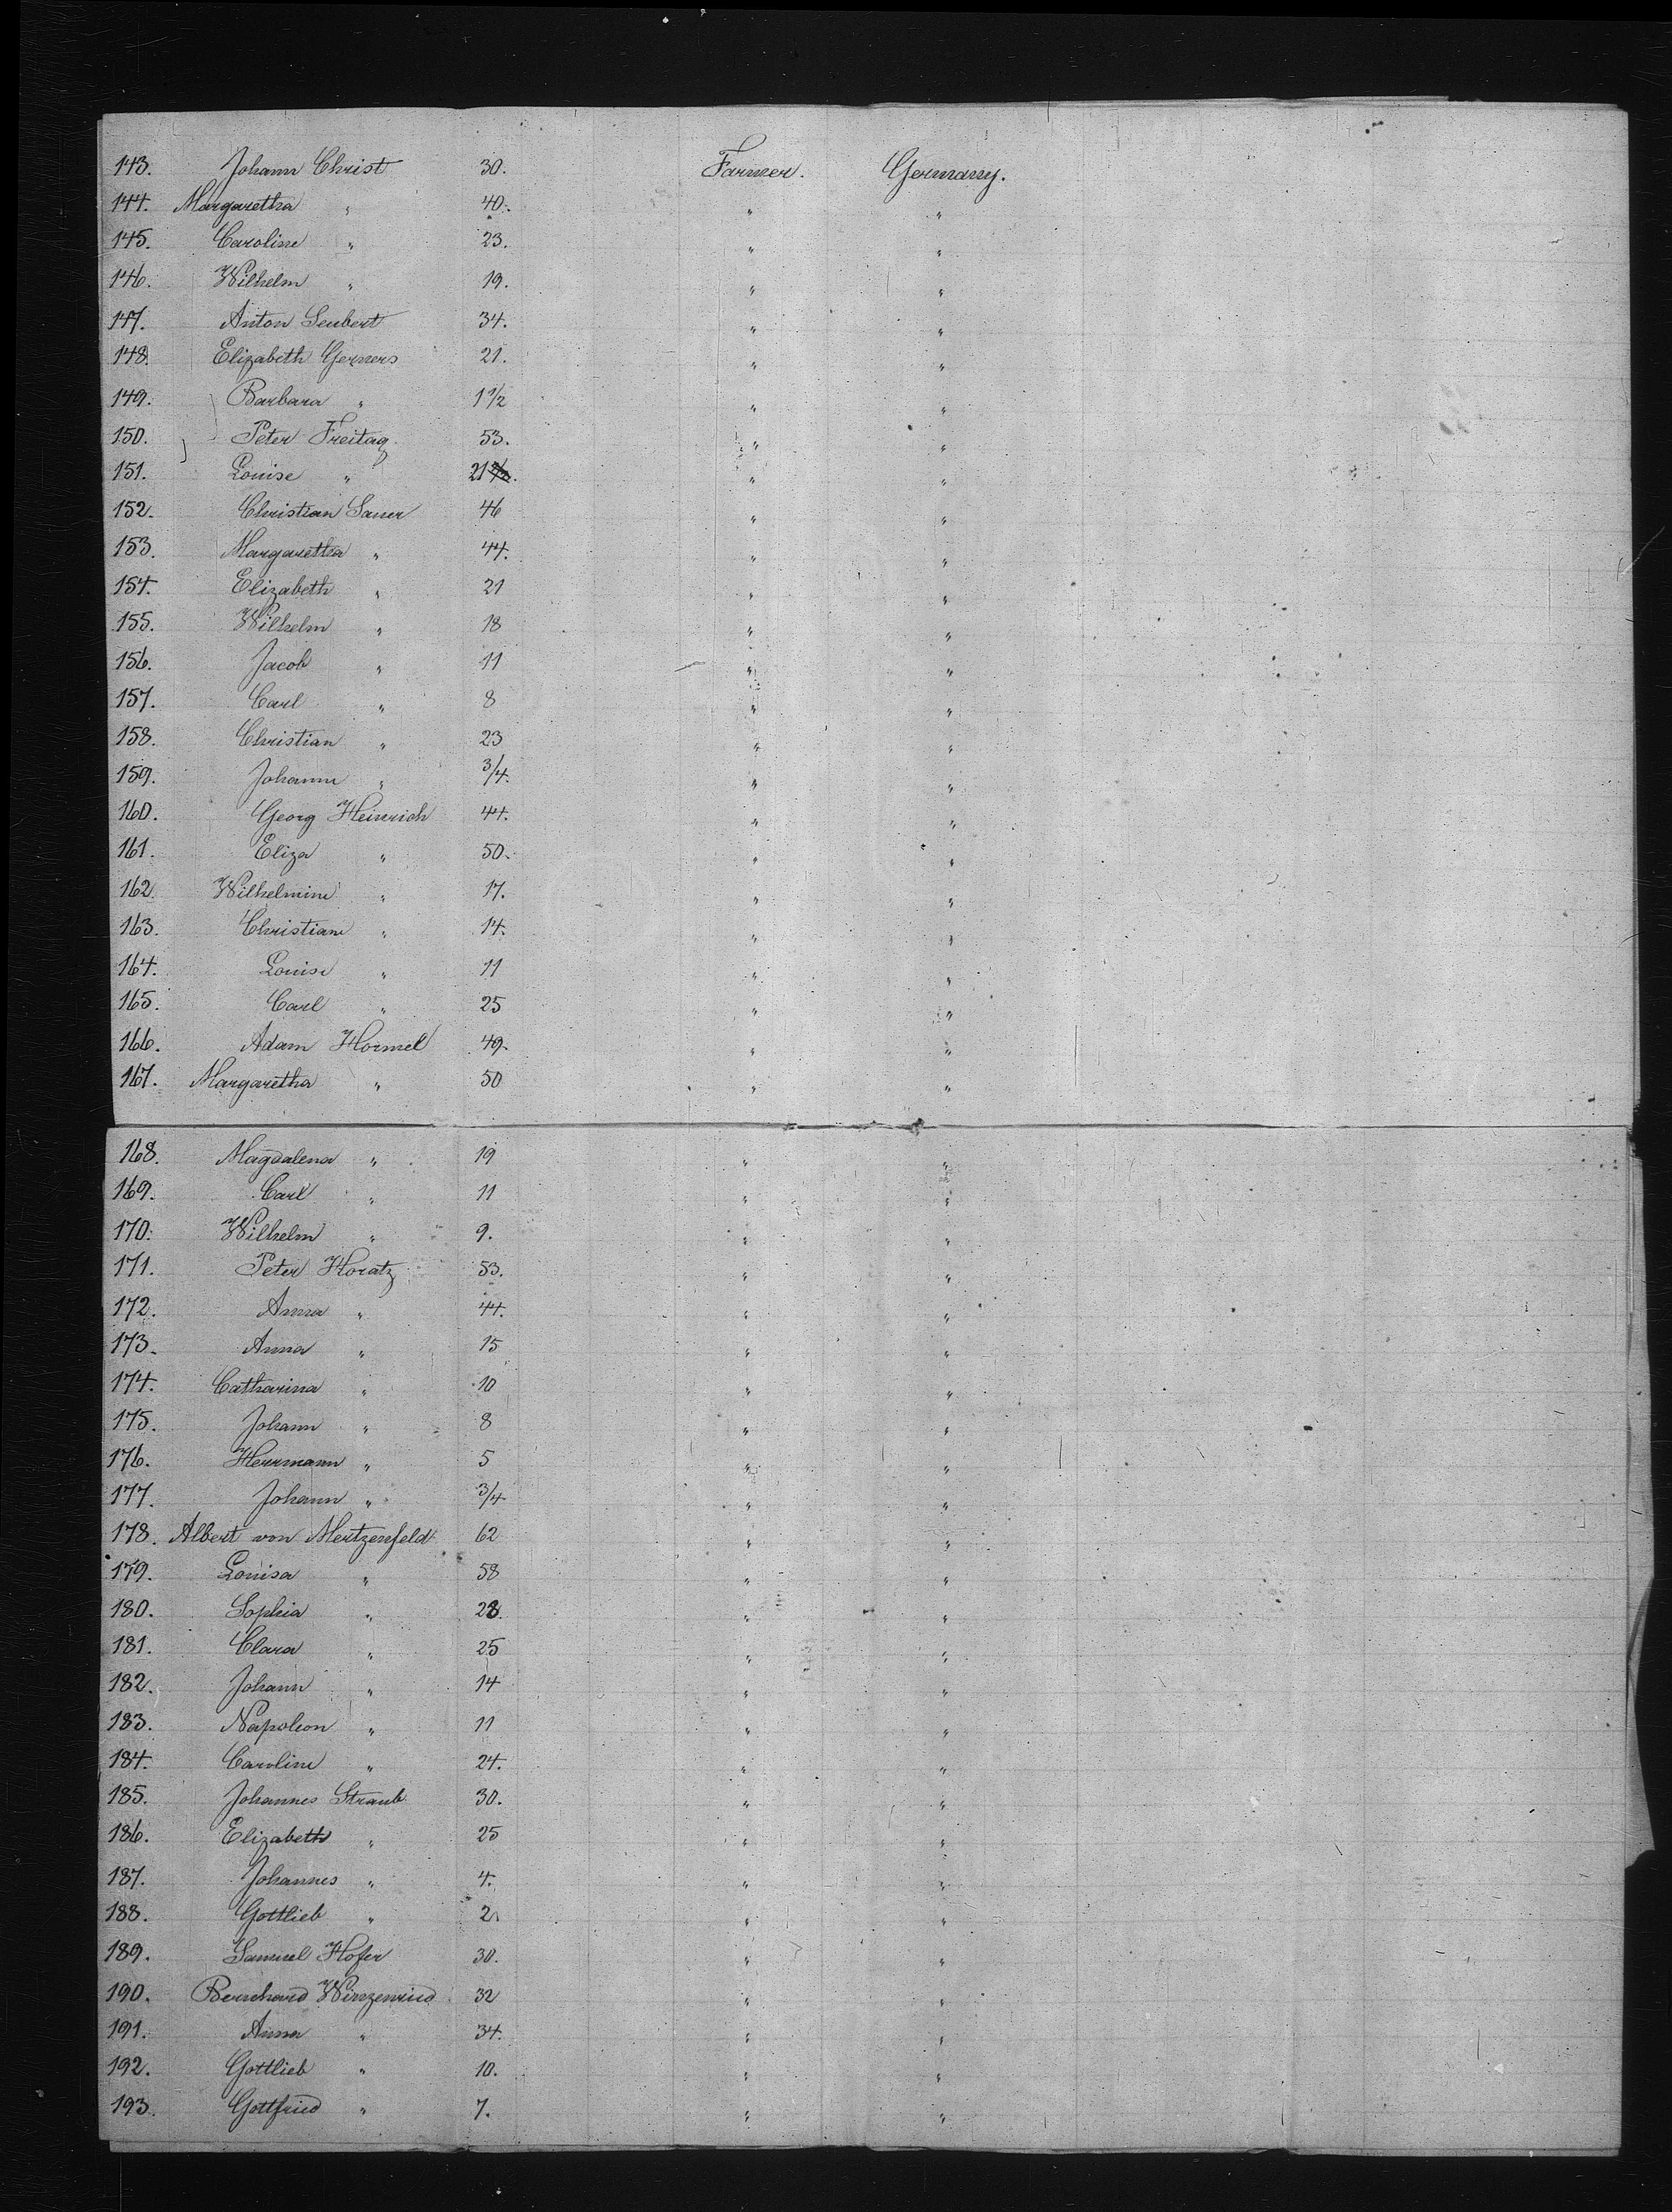 143. Johann Christ 30. Farmer. Germany.
144. Margaretha " 40. " "
145. Caroline " 23. " "
146. Wilhelm " 19. " "
147. Anton Seubert 34. " "
148. Elizabeth Gerners 21. " "
149. Barbara " 1 1/2 " "
150. Peter Freitag 53. " "
151. Louise " 21 " "
152. Christian Sauer 46 " "
153. Margaretha " 44. " "
154. Elizabeth " 21 " "
155. Wilhelm " 18 " "
156. Jacob " 11 " "
157. Carl " 8 " "
158. Christian " 23 " "
159. Johann " 3/4. " "
160. Georg Heinrich 44. " "
161. Eliza " 50. " "
162. Wilhelmine " 17. " "
163. Christian " 14. " "
164. Louise " 11 " "
165. Carl " 25 " "
166. Adam Hormel 49. " "
167. Margaretha " 50 " "
168. Magdalena " 19 " "
169. Carl " 11 " "
170. Wilhelm " 9. " "
171. Peter Horatz 53. " "
172. Anna " 44. " "
173. Anna " 15 " "
174. Catharina " 10 " "
175. Johann " 8 " "
176. Herrmann " 5 " "
177. Johann " 3/4 " "
178. Albert von Mertzenfeld 62 " "
179. Louisa " 58 " "
180. Sophia " 28. " "
181. Clara " 25 " "
182. Johann " 14 " "
183. Napoleon " 11 " "
184. Caroline " 24. " "
185. Johannes Straub 30. " "
186. Elizabeth " 25 " "
187. Johannes " 4. " "
188. Gottlieb " 2. " "
189. Samuel Hofer 30. " "
190. Bernhard Winzenried 32 " "
191. Anna " 34. " "
192. Gottlieb " 10. " "
193. Gottfried " 7. " "